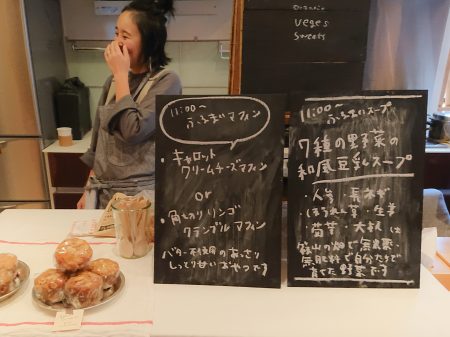 Organic
Veges
Sweets
11:00〜
ふるまいマフィン
・キャロット
クリームチーズマフィン
or
・角切りリンゴ
クランブルマフィン
バター不使用のあっさり
しっとり甘いおやつです
11:00〜
ふるまいスープ
7種の野菜の
和風豆乳スープ
・人参・長ネギ
・ほうれん草・生姜
・菊芋・大根は
篠山の畑で無農薬、
無肥料で自分たちで
育てた野菜です